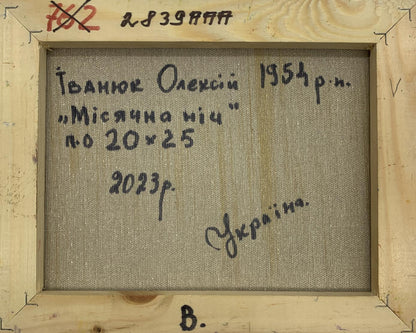 762 2839AAA
Іванюк Олексій 1954 р.н.
„Місячна ніч"
п.о 20×25
2023р.
Україна.
В.